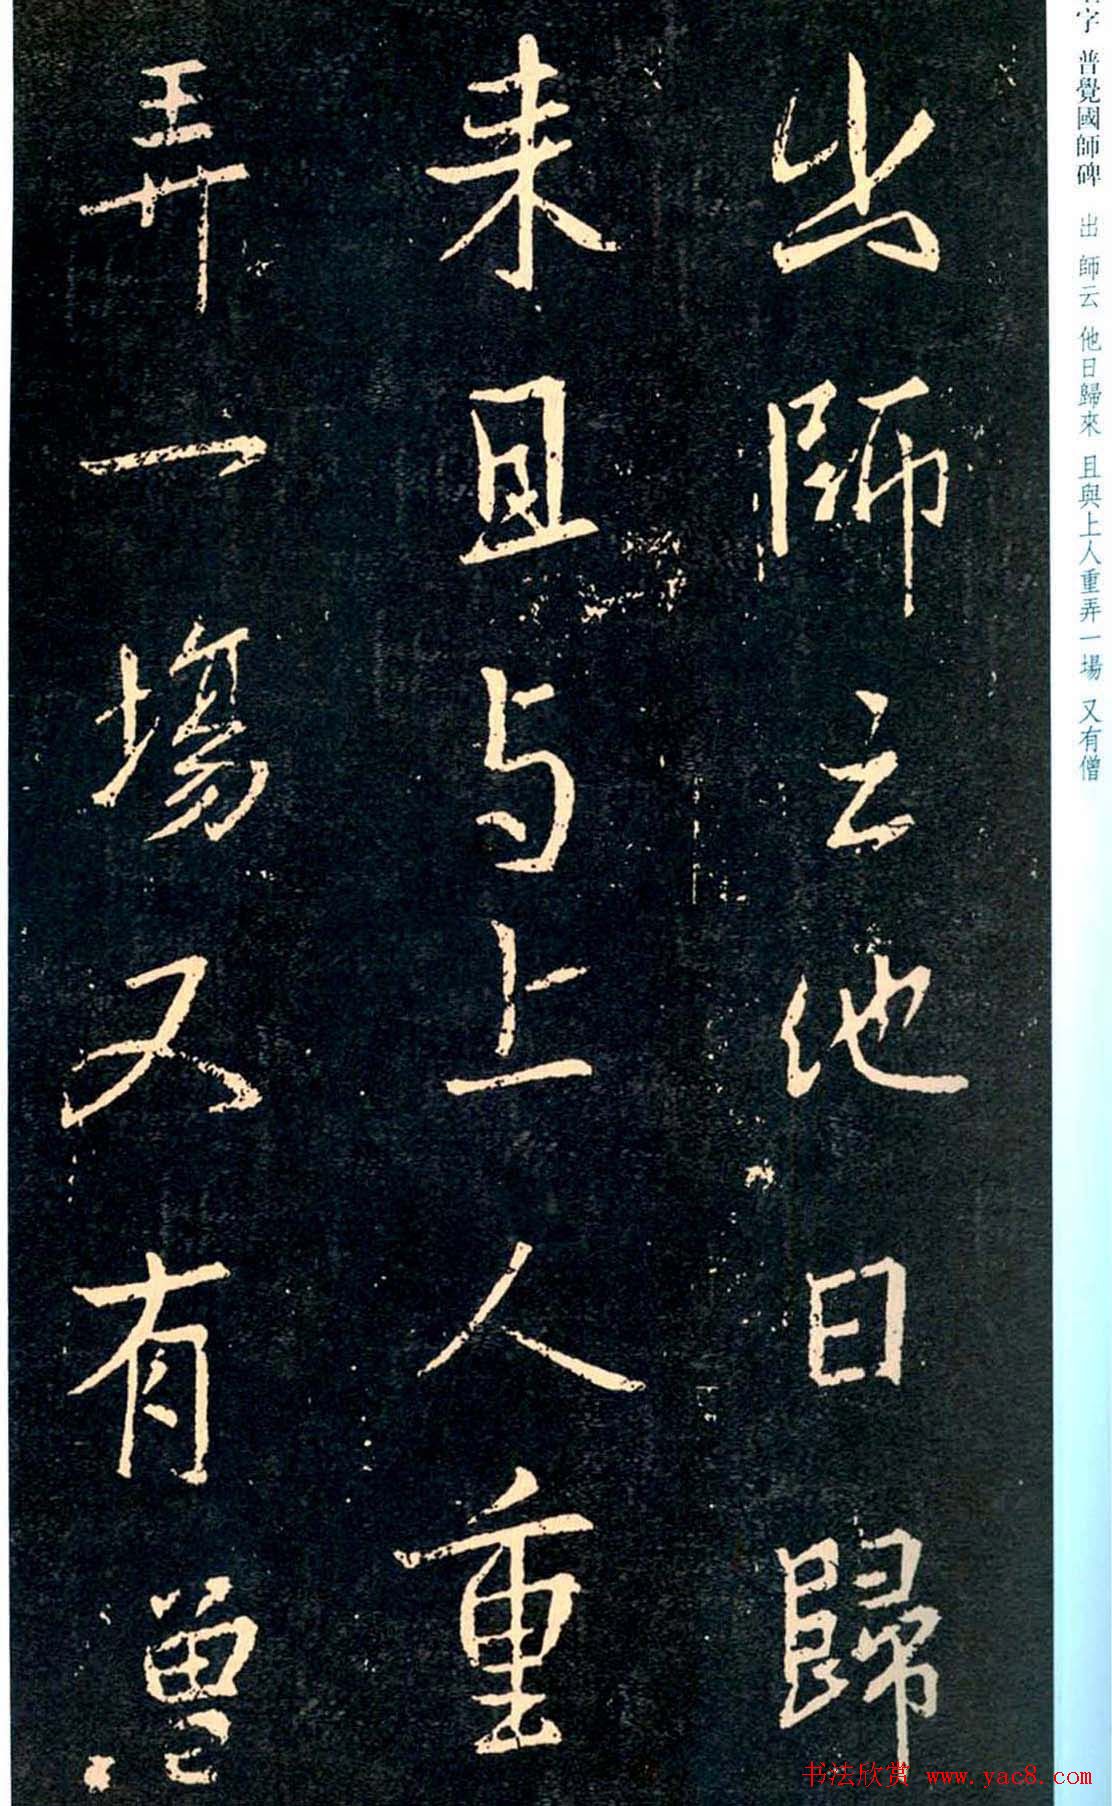 出師云他日歸
来且与上人重
弄一場又有僧
字 普覺國師碑 出 師云 他日歸來 且與上人重弄一場 又有僧
书法欣赏 www.yac8.com